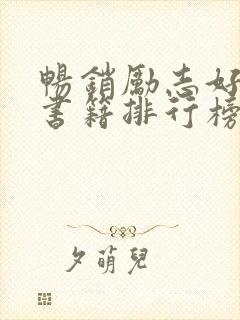 暢銷勵志好
書籍排行榜
夕萌兒